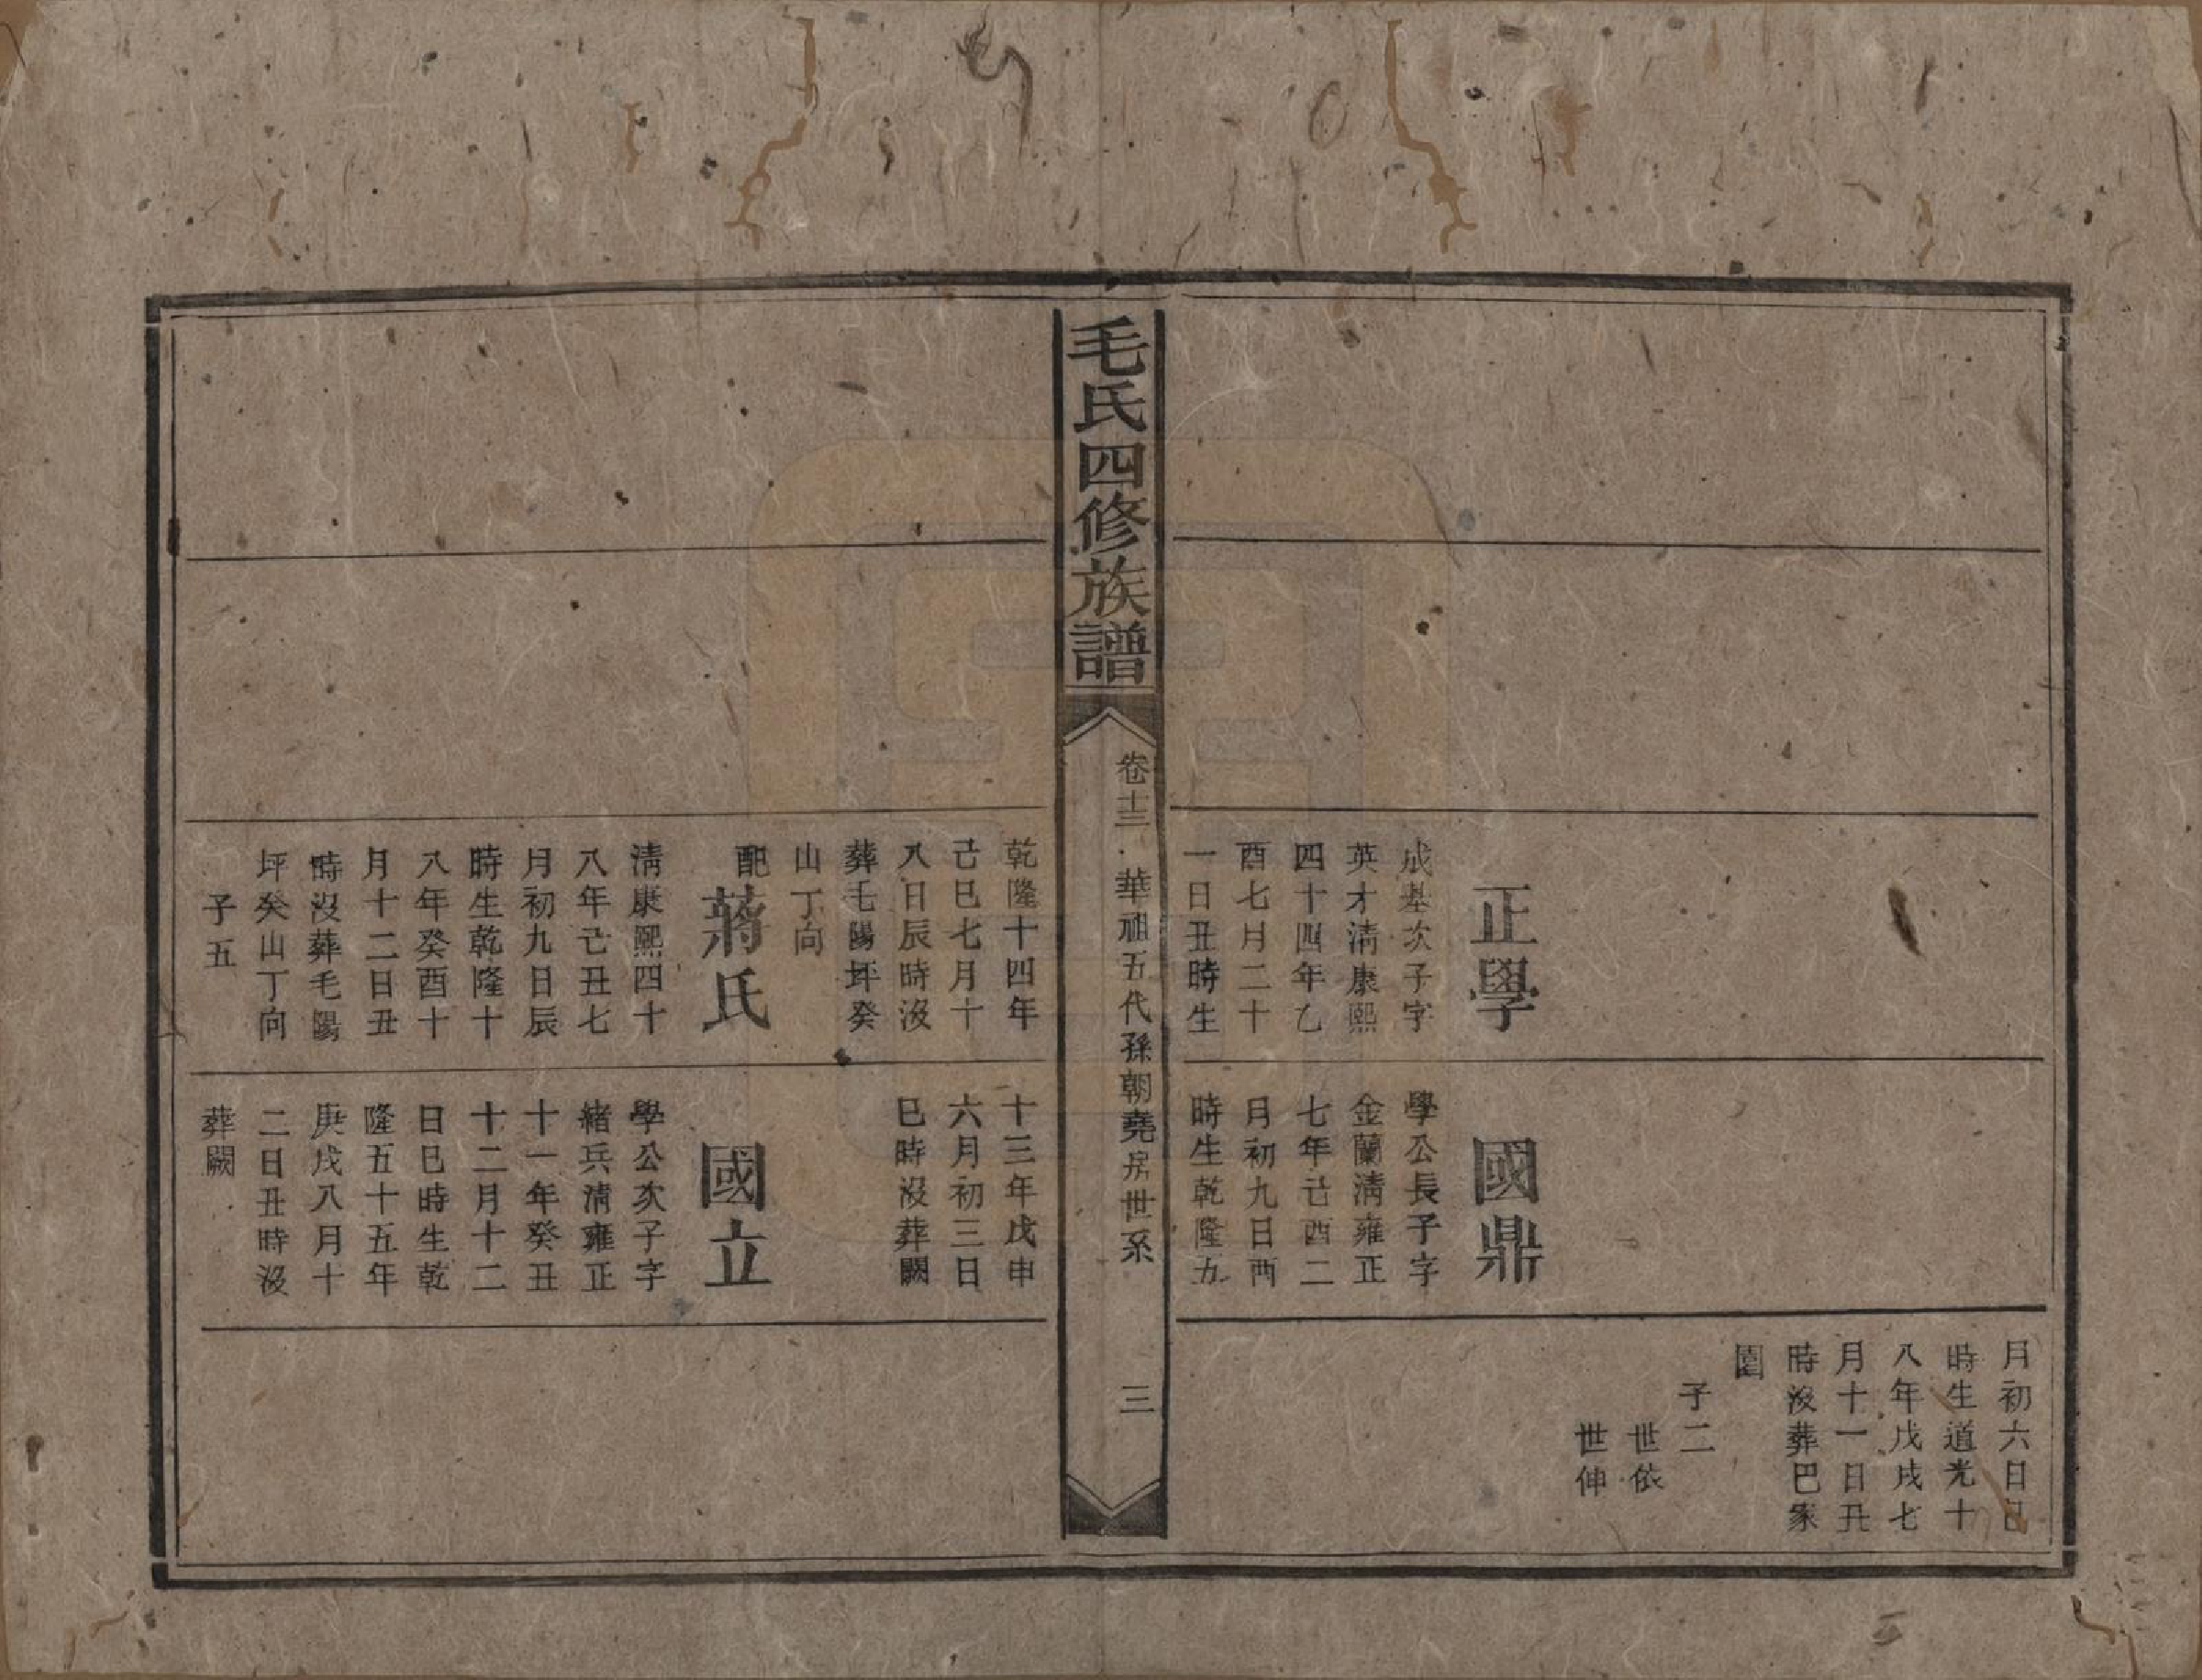 正學
成基次子字
英才清康熙
四十四年乙
酉七月二十
一日丑時生
國鼎
學公長子字
金蘭清雍正
七年己酉二
月初九日酉
時生乾隆五
月初六日巳
時生道光十
八年戊戌七
月十一日丑
時沒葬巴家
園
子二
世依
世伸
毛氏四修族譜
卷十三
華祖五代孫朝堯房世系
三
乾隆十四年
己巳七月十
八日辰時沒
葬毛陽坪癸
山丁向
配蔣氏
清康熙四十
八年己丑七
月初九日辰
時生乾隆十
八年癸酉十
月十二日丑
時沒葬毛陽
坪癸山丁向
子五
十三年戊申
六月初三日
巳時沒葬闕
國立
學公次子字
緒兵清雍正
十一年癸丑
十二月十二
日巳時生乾
隆五十五年
庚戌八月十
二日丑時沒
葬闕